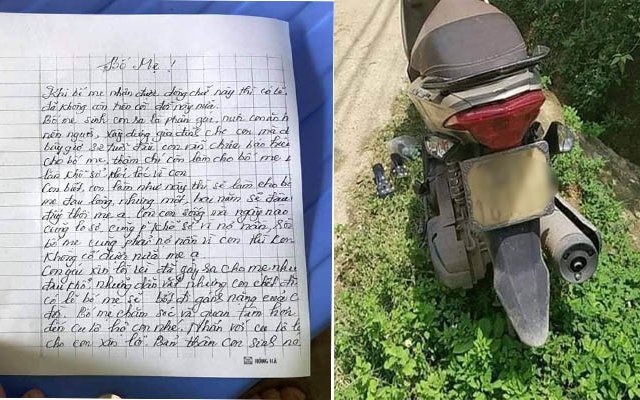 Bố Mẹ !
Khi bố mẹ nhận được dòng chữ này thì có lẽ
đã không còn trên cõi đời này nữa.
Bố mẹ sinh con ra là phận gái, nuôi con ăn h
nên người, xây dựng gia đình cho con mà đ
bây giờ 32 tuổi đầu, con vẫn chưa báo hiếu
cho bố mẹ, thậm chí còn làm cho bố mẹ
khổ sở vì con
Con biết, con làm như này thì sẽ làm cho bố
mẹ đau lòng, nhưng một, hai năm sẽ đâu
mẹ ạ. Còn con sống và ngày nào
cũng lo sợ, cũng khổ sở vì nợ nần,
bố mẹ cũng phải nợ nần vì con thì con
không có được nữa mẹ ạ
Con gái xin lỗi vì đã gây ra cho mẹ như
đau khổ nhưng dằn vặt nhưng con chết đi
có lẽ bố mẹ sẽ bớt đi gánh nặng cuộc
đời. Bố mẹ chăm sóc và quan tâm hơn
đến cu tũ hộ con nhé. Nhắn với cu
cho con xin lỗi. Bản thân con sinh
HỒNG HÀ